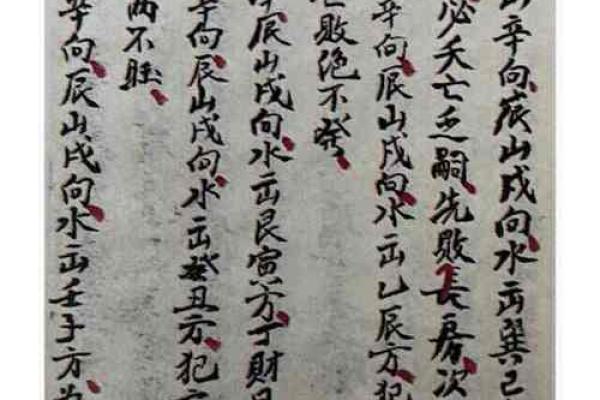 山辛向辰山戌向水出巽巳
必夭亡乏嗣先敗長房次
辛向辰山戌向水出乙辰方犯
敗絶不發
辰山戌向水出艮寅方丁財
辛向辰山戌向水出癸丑方犯
两不
辛向辰山戌向水出壬子方為